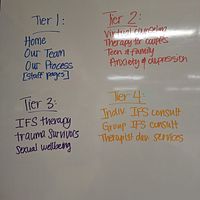 Tier 1:
Home
Our Team
Our Process
[staff pages]
Tier 2:
Virtual counseling
Therapy for couples
Teen & family
Anxiety & depression
Tier 3:
IFS therapy
trauma survivors
sexual wellbeing
Tier 4:
Indiv IFS consult
Group IFS consult
Therapist dev services